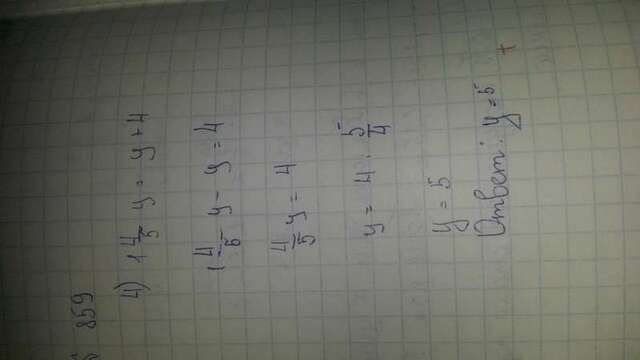 859
4) 1 4/5 y = y + 4
1 4/5 y - y = 4
4/5 y = 4
y = 4 · 5/4
y = 5
Ответ: y = 5
+